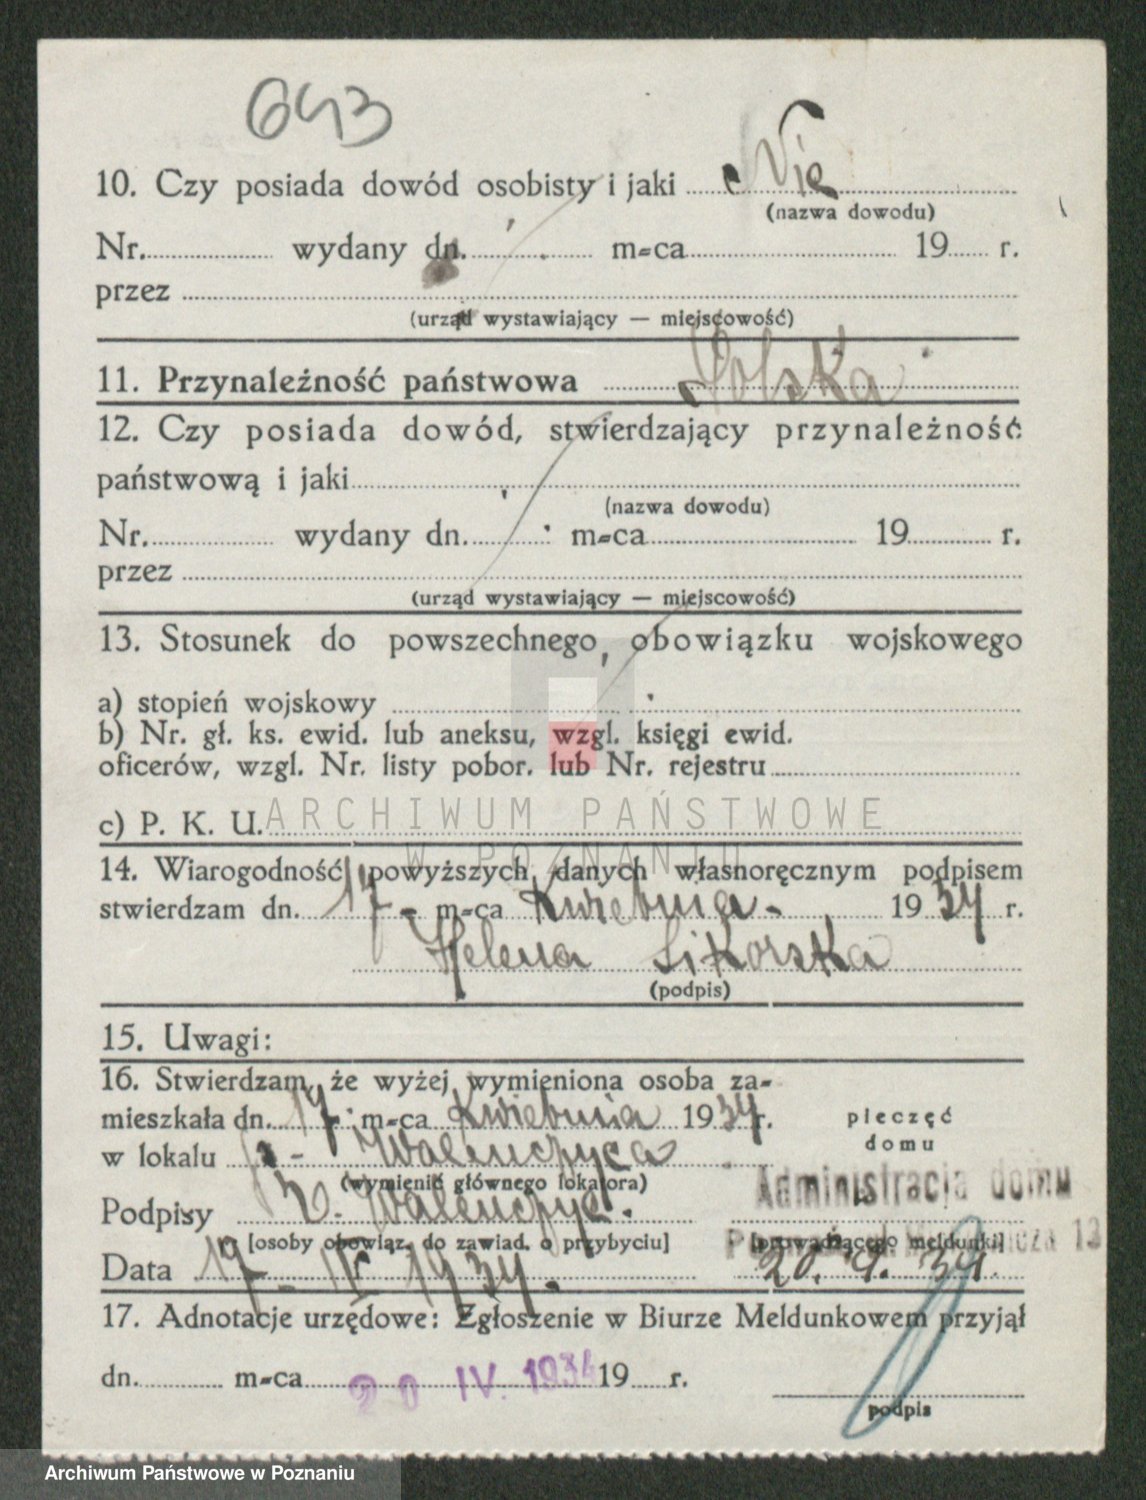 643
10. Czy posiada dowód osobisty i jaki Nie
(nazwa dowodu)
Nr. wydany dn. m-ca 19 r.
przez
(urząd wystawiający — miejscowość)
11. Przynależność państwowa Polska
12. Czy posiada dowód, stwierdzający przynależność
państwową i jaki
(nazwa dowodu)
Nr. wydany dn. m-ca 19 r.
przez
(urząd wystawiający — miejscowość)
13. Stosunek do powszechnego obowiązku wojskowego
a) stopień wojskowy
b) Nr. gł. ks. ewid. lub aneksu, wzgl. księgi ewid.
oficerów, wzgl. Nr. listy pobor. lub Nr. rejestru
ARCHIWUM PAŃSTWOWE
c) P. K. U.
W POZNANIU
14. Wiarogodność powyższych danych własnoręcznym podpisem
stwierdzam dn. 17 - m-ca Kwietnia - 1934 r.
Helena Sikorska
(podpis)
15. Uwagi:
16. Stwierdzam, że wyżej wymieniona osoba za-
mieszkała dn. 17. m-ca Kwietnia 1934 r.
pieczęć
domu
w lokalu Walenczyca
(wymienić głównego lokatora)
Administracja domu
Podpisy Walenczyc.
[osoby obowiąz. do zawiad. o przybyciu] [prowadzącego meldunki]
13
Data 17 - IV 1934. 20. 4. 34.
17. Adnotacje urzędowe: Zgłoszenie w Biurze Meldunkowem przyjął
dn. m-ca 20 IV. 1934 19 r.
podpis
Archiwum Państwowe w Poznaniu